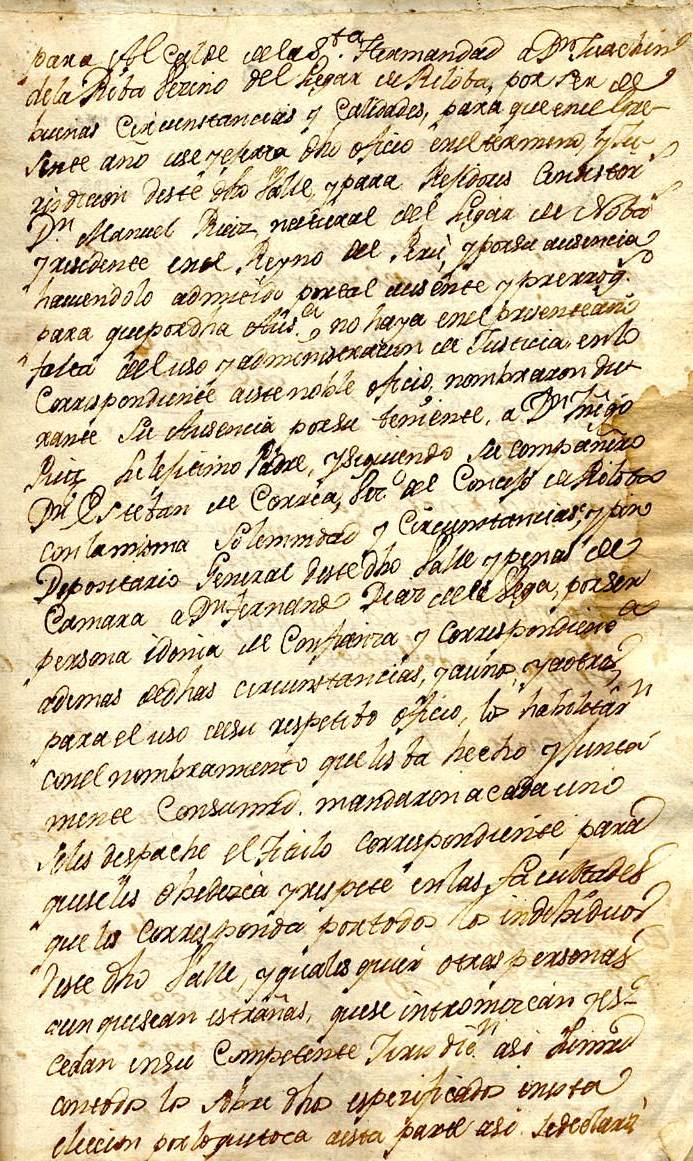 para Alcalde de la S.ta Hermandad a Dn Juachin
de la Riba Vezino del Lugar de Riloba, por ser de
buenas Circunstancias y Calidades, para que en el pre-
sente año use y ejerza dho oficio en el termino y Ju-
risdicion deste dho Valle y para Rejidores
Dn Manuel Ruiz natural del Lugar de
y residente en el Reyno del Perú, y por su ausencia
haviendolo admitido por tal ausente y prerrog.
para que por dha Aus.a no haya en el presente año
falta del uso y administracion de Justicia en lo
Correspondiente a este noble oficio, nombraron du-
rante su Ausencia por su teniente, a Dn Iñigo
Ruiz su lejitimo Padre, y siguiendo su compañero
Dn Esteban de Correa, del Concejo de Riloba
con la misma Solemnidad y Circunstancias, y por
Depositario General deste dho Valle y penas de
Camara a Dn Fernando Diaz de la Vega, por ser
persona idonia de Confianza y correspondiente
ademas de dhas circunstancias, y a unos, y a otros
para el uso de su respetibo oficio, los habilitarn
con el nombramiento que les ba hecho y Junta
mente Consumad. mandaron a cada uno
se les despache el Titulo correspondiente para
que se les Obedezca y respete en las facultades
que les Corresponda por todos los indebiduos
deste dho Valle, y quales quier otras personas
aunque sean estrañas, que se intromezcan y es-
cedan en su Competente Jurisdic.n asi
con todos los sobre dhos espezificados en esta
eleccion por lo que toca a esta parte asi se declara